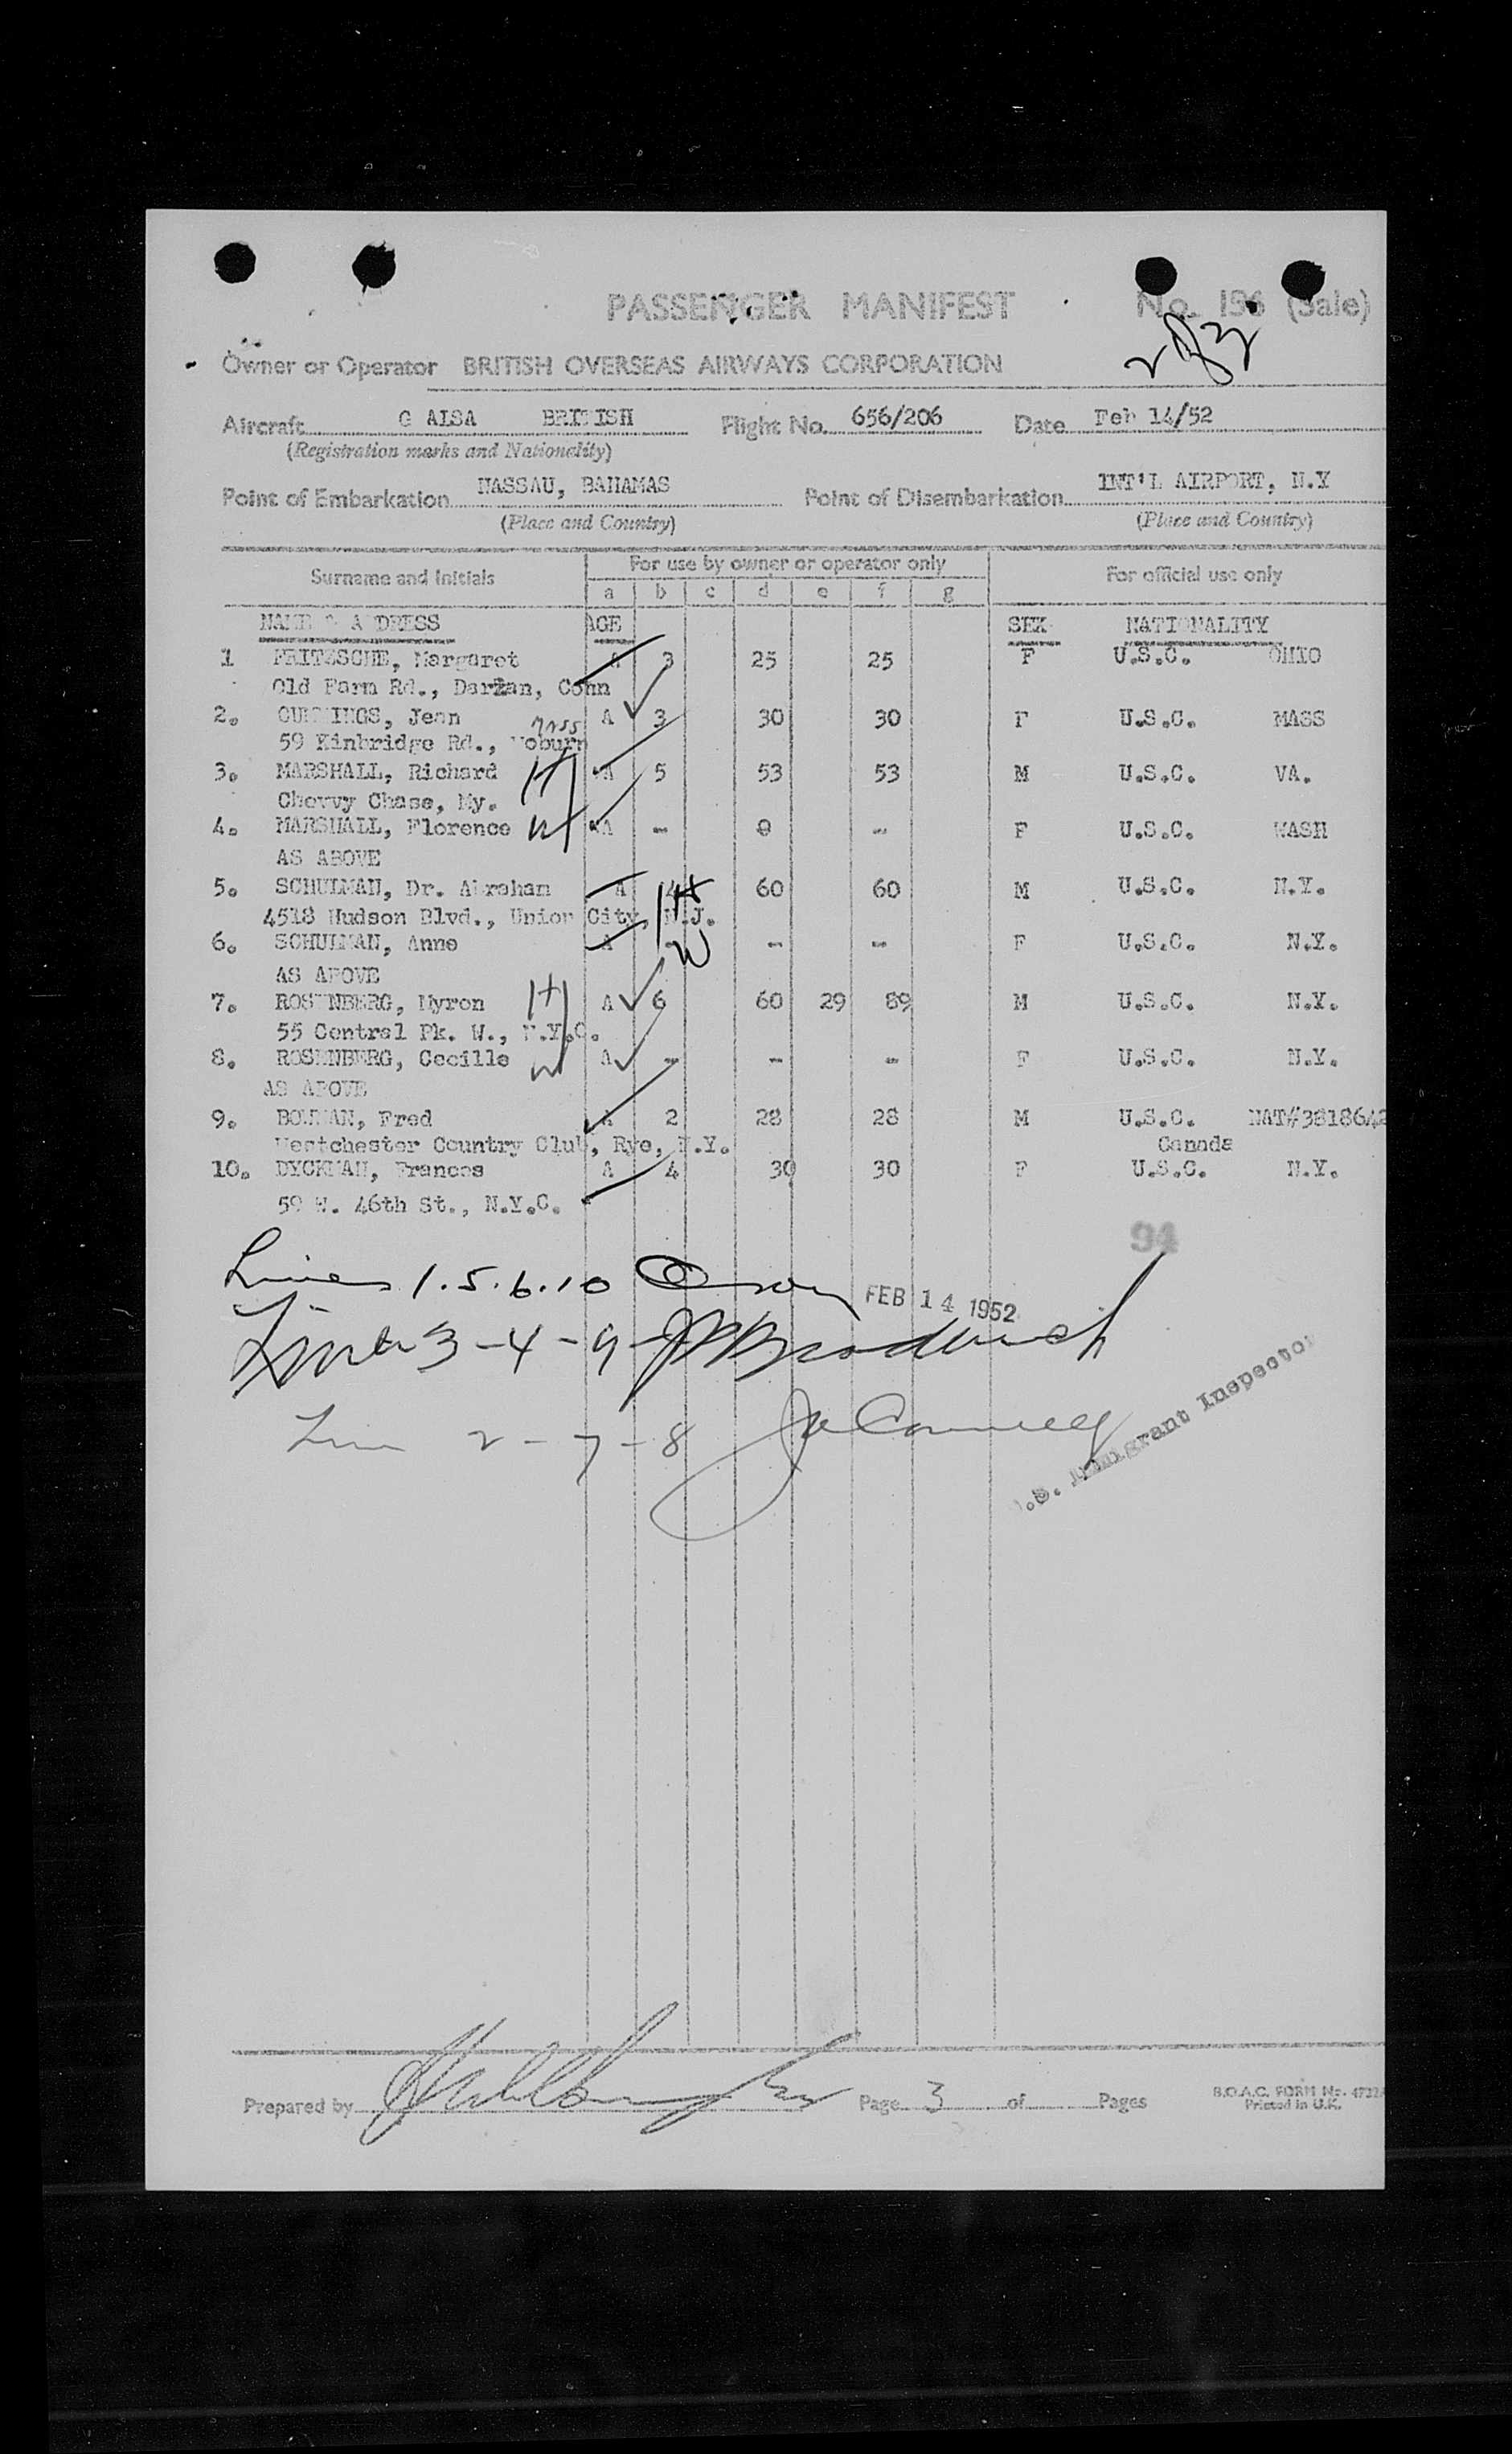 PASSENGER MANIFEST No. 156 (Sale)
Owner or Operator BRITISH OVERSEAS AIRWAYS CORPORATION
Aircraft G ALSA BRITISH Flight No. 656/206 Date Feb 14/52
(Registration marks and Nationality)
Point of Embarkation NASSAU, BAHAMAS Point of Disembarkation INT'L AIRPORT, N.Y
(Place and Country) (Place and Country)
Surname and Initials For use by owner or operator only For official use only
a b c d e f g
NAME & ADDRESS AGE SEX NATIONALITY
1 FRITZSCHE, Margaret A 3 25 25 F U.S.C. OHIO
Old Farm Rd., Darian, Conn
2. CUMMINGS, Jean A 3 30 30 F U.S.C. MASS
59 Kinbridge Rd., Woburn
3. MARSHALL, Richard H A 5 53 53 M U.S.C. VA.
Chevvy Chase, My.
4. MARSHALL, Florence W A - 0 - F U.S.C. WASH
AS ABOVE
5. SCHULMAN, Dr. Abraham A 4 H 60 60 M U.S.C. N.Y.
4518 Hudson Blvd., Union City, N.J.
6. SCHULMAN, Anne A - W - - F U.S.C. N.Y.
AS ABOVE
7. ROSENBERG, Myron H A 6 60 29 89 M U.S.C. N.Y.
55 Central Pk. W., N.Y.C.
8. ROSENBERG, Cecille W A - - - F U.S.C. N.Y.
AS ABOVE
9. BOWMAN, Fred A 2 28 28 M U.S.C. NAT#3818642
Westchester Country Club, Rye, N.Y. Canada
10. DYCKMAN, Frances A 4 30 30 F U.S.C. N.Y.
59 W. 46th St., N.Y.C.
94
Lines 1.5.6.10
FEB 14 1952
Lines 3-4-9-
Line 2-7-8
U.S. Immigrant Inspector
Prepared by Page 3 of Pages B.O.A.C. FORM No.
Printed in U.K.